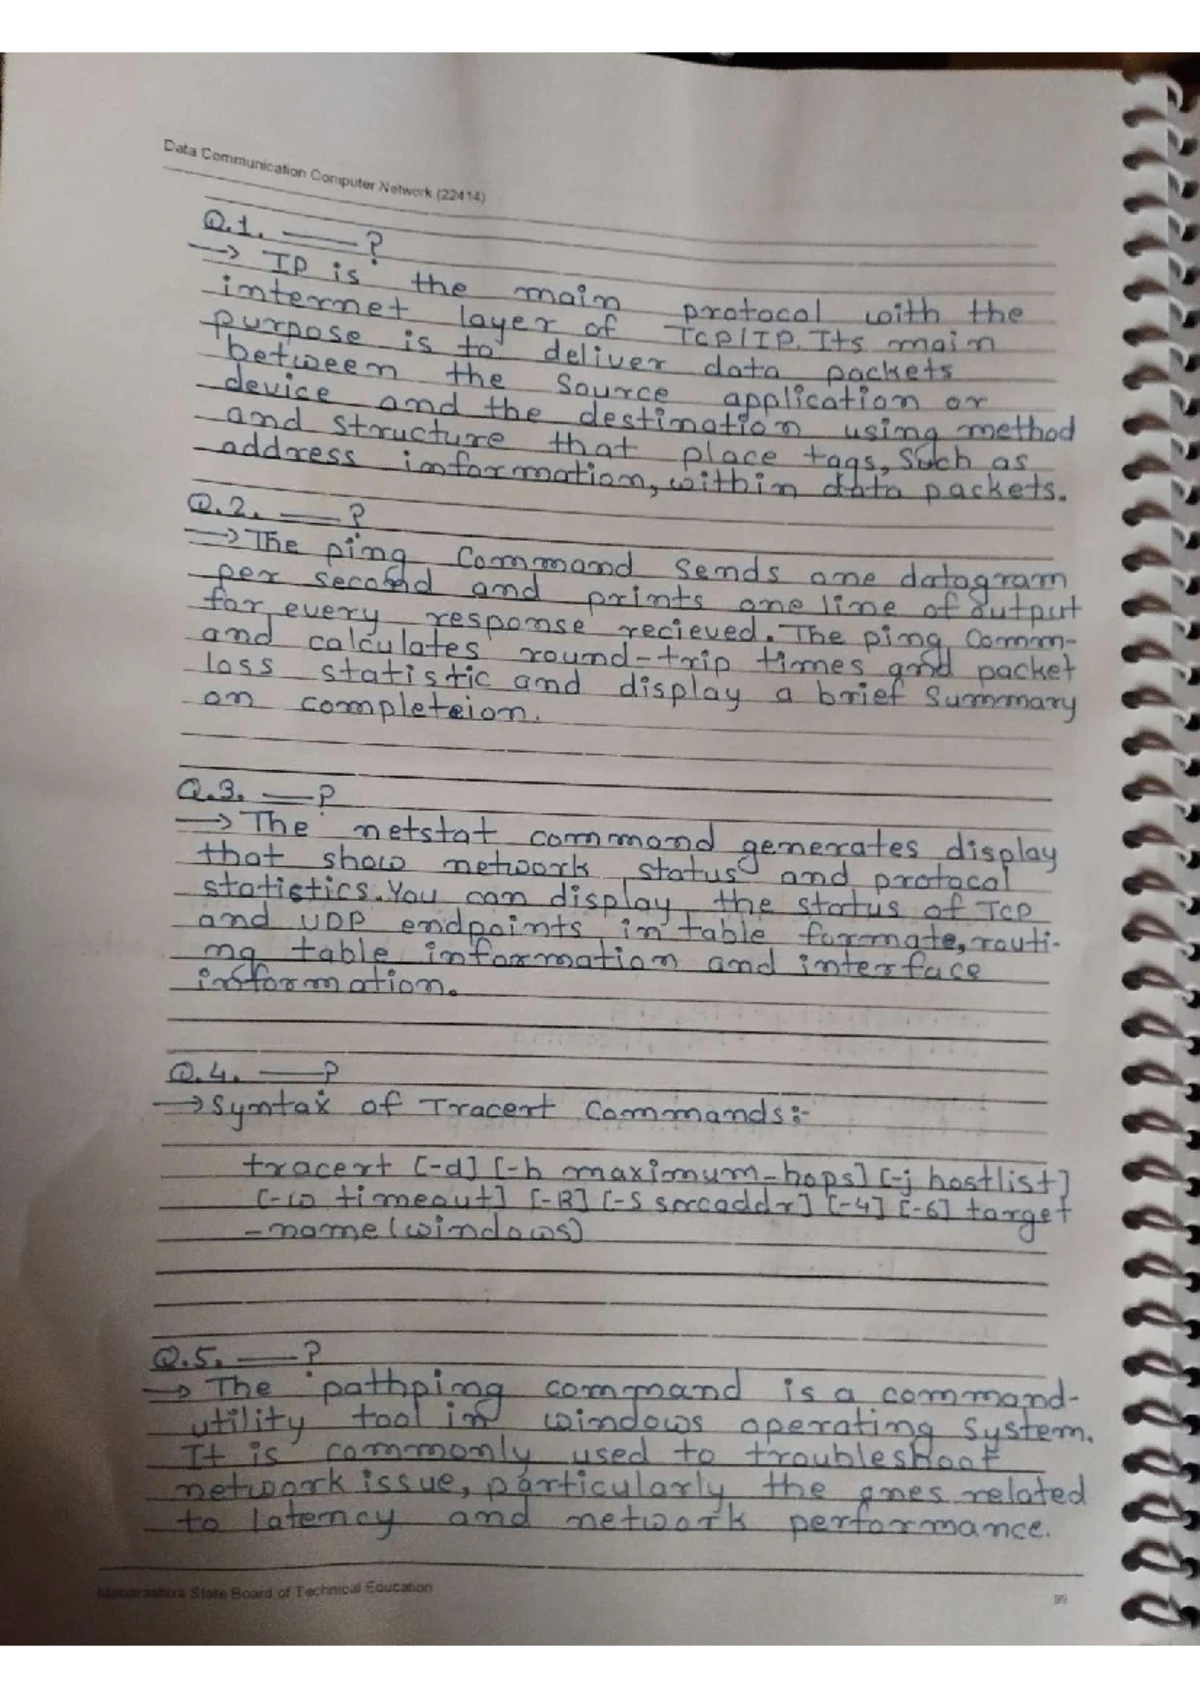 Data Communication Computer Network (22414)
Q.1. ——?
→ IP is the main protocol with the
internet layer of TCP/IP. Its main
purpose is to deliver data packets
between the source application or
device and the destination using method
and structure that place tags, such as
address information, within data packets.
Q.2. ——?
→ The ping command sends one datagram
per second and prints one line of output
for every response recieved. The ping comm-
and calculates round-trip times and packet
loss statistic and display a brief summary
on completeion.
Q.3. ——?
→ The netstat command generates display
that show network status and protocol
statistics. You can display the status of TCP
and UDP endpoints in table formate, routi-
ng table information and interface
information.
Q.4. ——?
→ Syntax of Tracert Commands:-
tracert [-d] [-h maximum-hops] [-j hostlist]
[-w timeout] [-R] [-S srcaddr] [-4] [-6] target
-name (windows)
Q.5. ——?
→ The pathping command is a command-
utility tool in windows operating system.
It is commonly used to troubleshoot
network issue, particularly the ones related
to latency and network performance.
Maharashtra State Board of Technical Education
99